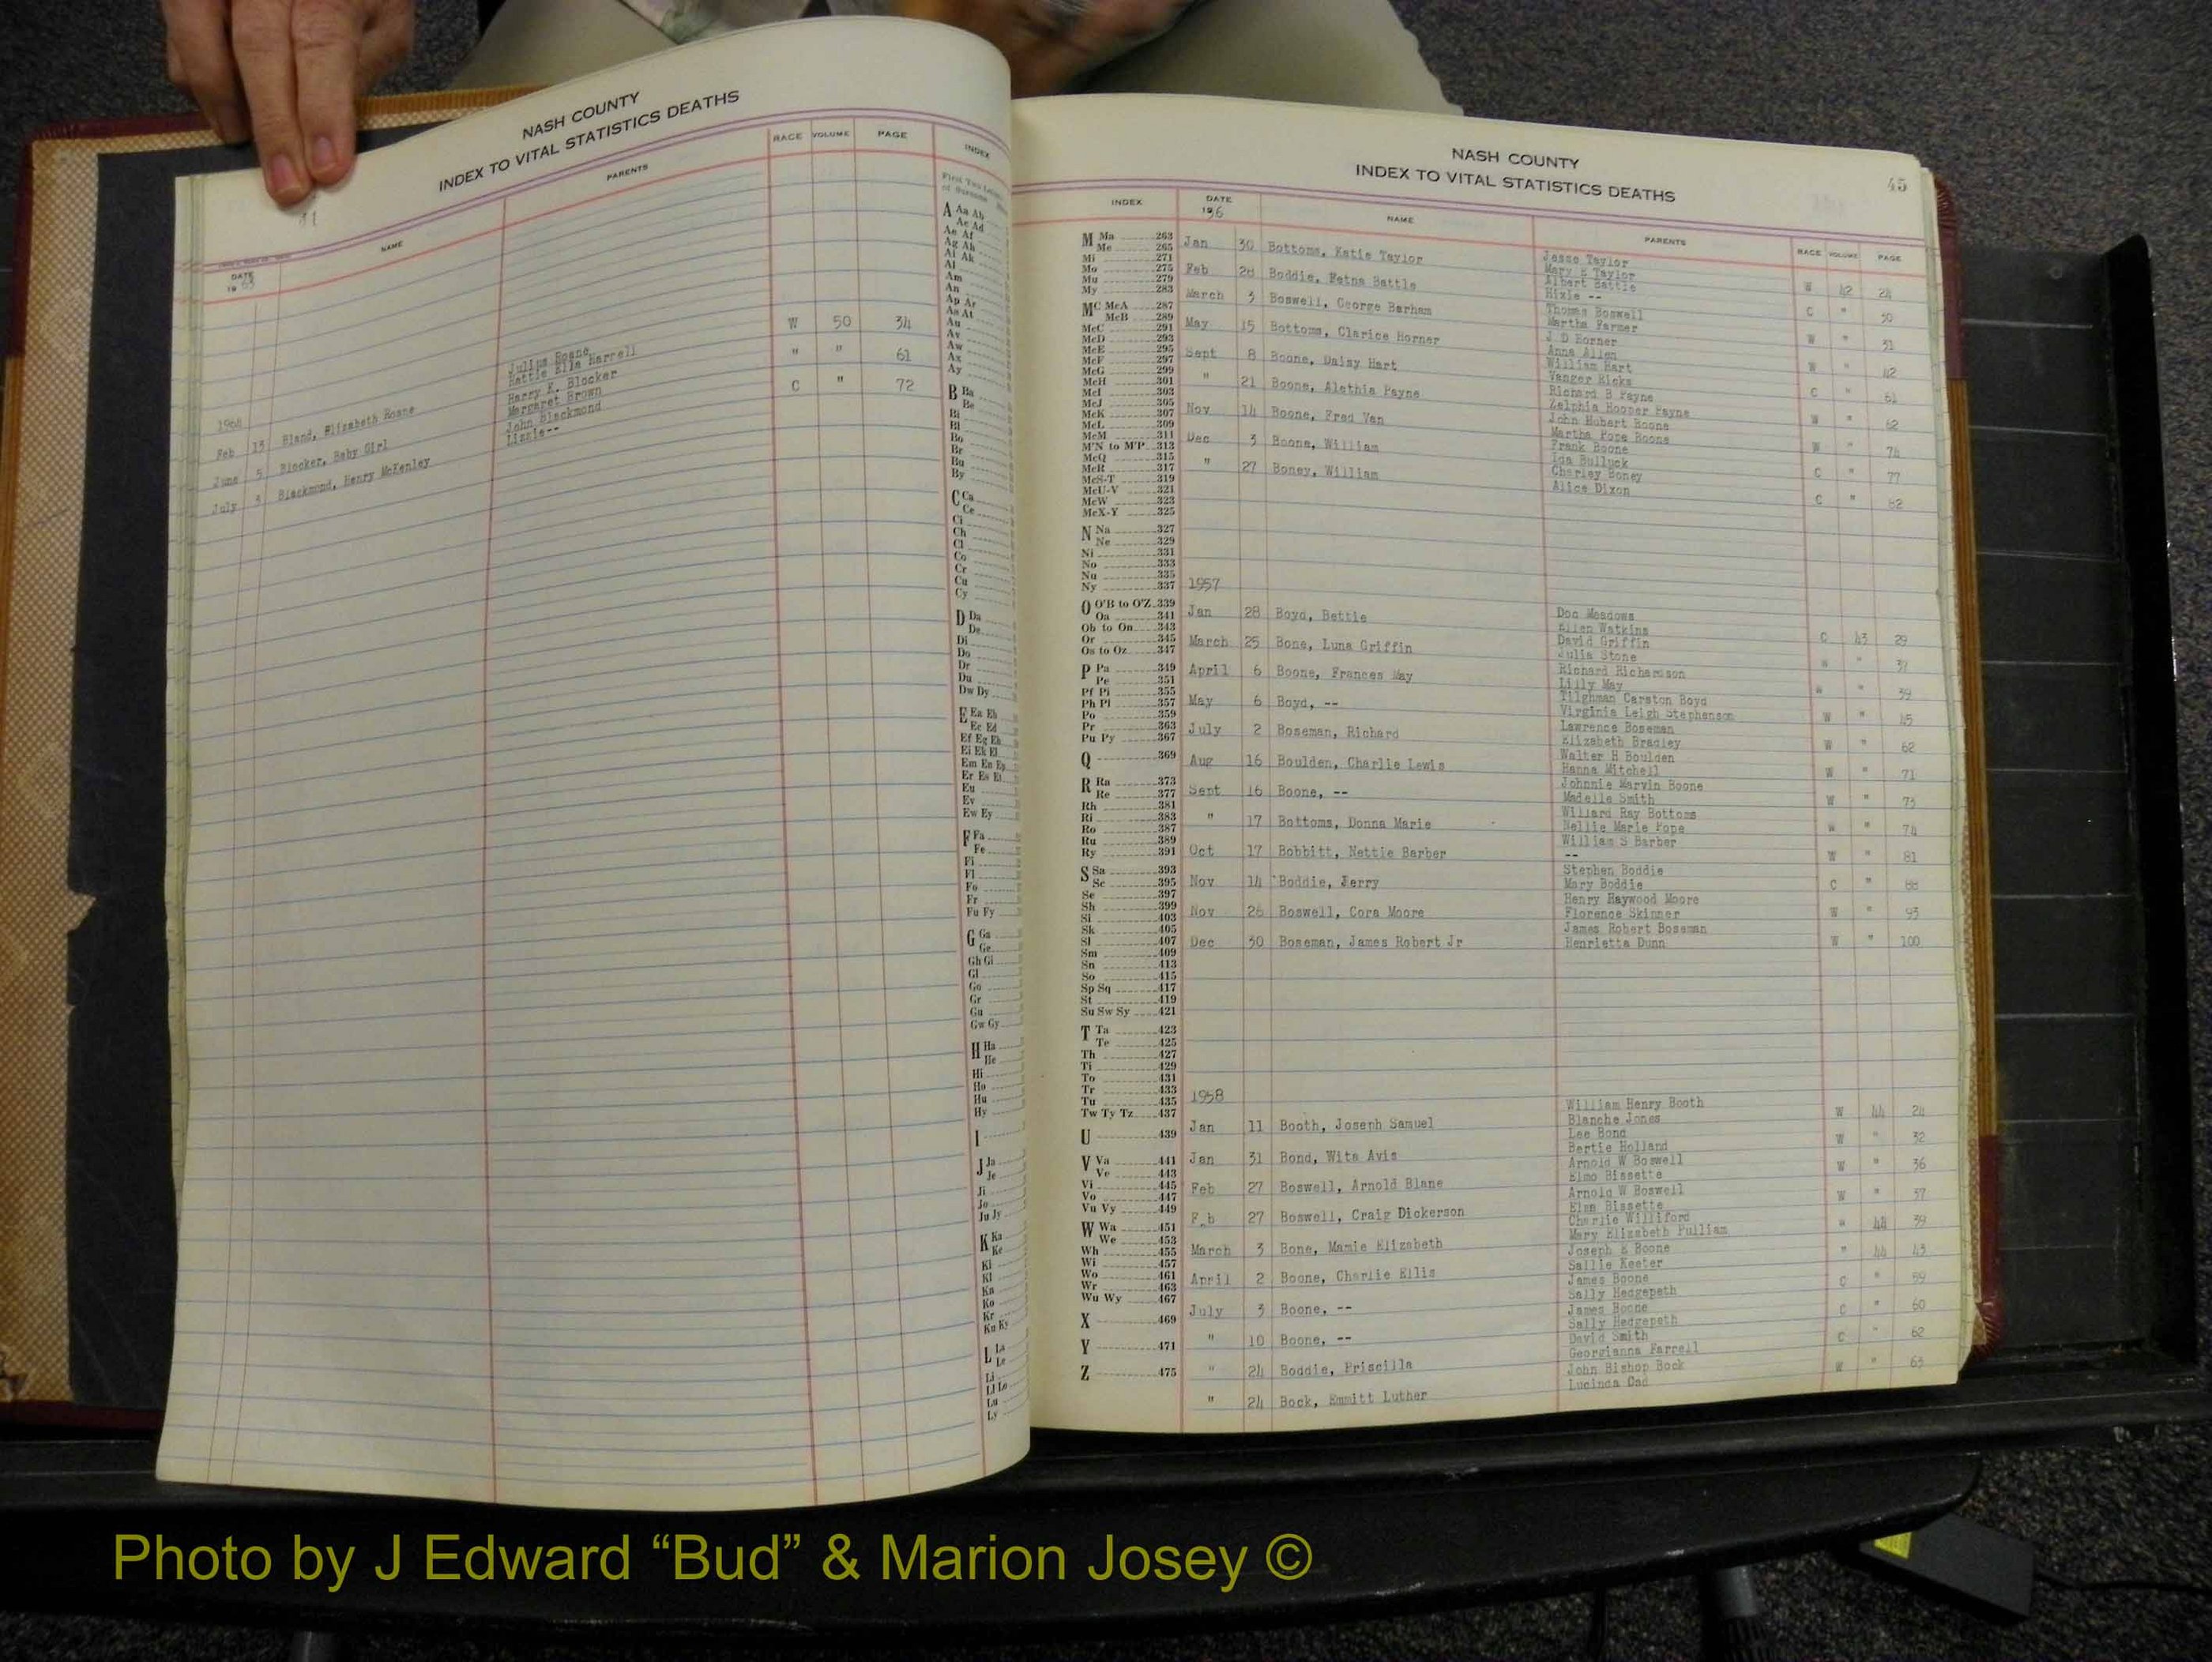 NASH COUNTY
INDEX TO VITAL STATISTICS DEATHS
NAME PARENTS RACE VOLUME PAGE INDEX
DATE
1964
Feb 13 Bland, Elizabeth Roane Julius Roane W 50 34
Hattie Ella Harrell
June 5 Blocker, Baby Girl Harry K. Blocker " " 61
Margaret Brown
July 3 Blackmond, Henry McKenley John Blackmond C " 72
Lizzie--
First Two Letters
of Surname
A Aa Ab
Ac Ad
Ae Af
Ag Ah
Ai Ak
Al
Am
An
Ap Ar
As At
Au
Av
Aw
Ax
Ay
B Ba
Be
Bi
Bl
Bo
Br
Bu
By
C Ca
Ce
Ci
Ch
Cl
Co
Cr
Cu
Cy
D Da
De
Di
Do
Dr
Du
Dw Dy
E Ea Eb
Ec Ed
Ef Eg Eh
Ei Ek El
Em En Ep
Er Es Et
Eu
Ev
Ew Ey
F Fa
Fe
Fi
Fl
Fo
Fr
Fu Fy
G Ga
Ge
Gh Gi
Gl
Go
Gr
Gu
Gw Gy
H Ha
He
Hi
Ho
Hu
Hy
I
J Ja
Je
Ji
Jo
Ju Jy
K Ka
Ke
Ki
Kl
Kn
Ko
Kr
Ku Ky
L La
Le
Li
Ll Lo
Lu
Ly
NASH COUNTY
INDEX TO VITAL STATISTICS DEATHS
45
INDEX DATE NAME PARENTS RACE VOLUME PAGE
1956
M Ma 263
Me 265
Mi 271
Mo 275
Mu 279
My 283
MC McA 287
McB 289
McC 291
McD 293
McE 295
McF 297
McG 299
McH 301
McI 303
McJ 305
McK 307
McL 309
McM 311
M'N to M'P 313
McQ 315
McR 317
McS-T 319
McU-V 321
McW 323
McX-Y 325
N Na 327
Ne 329
Ni 331
No 333
Nu 335
Ny 337
O O'B to O'Z 339
Oa 341
Ob to On 343
Or 345
Os to Oz 347
P Pa 349
Pe 351
Pf Pi 355
Ph Pl 357
Po 359
Pr 363
Pu Py 367
Q 369
R Ra 373
Re 377
Rh 381
Ri 383
Ro 387
Ru 389
Ry 391
S Sa 393
Sc 395
Se 397
Sh 399
Si 403
Sk 405
Sl 407
Sm 409
Sn 413
So 415
Sp Sq 417
St 419
Su Sw Sy 421
T Ta 423
Te 425
Th 427
Ti 429
To 431
Tr 433
Tu 435
Tw Ty Tz 437
U 439
V Va 441
Ve 443
Vi 445
Vo 447
Vu Vy 449
W Wa 451
We 453
Wh 455
Wi 457
Wo 461
Wr 463
Wu Wy 467
X 469
Y 471
Z 475
Jan 30 Bottoms, Katie Taylor Jesse Taylor
Mary E Taylor W 42 24
Feb 28 Boddie, Fetna Battle Albert Battle
Hixie -- C " 30
March 3 Boswell, George Barham Thomas Boswell
Martha Farmer W " 31
May 15 Bottoms, Clarice Horner J D Horner
Anna Allen W " 42
Sept 8 Boone, Daisy Hart William Hart
Vanger Ricks C " 61
" 21 Boone, Alethia Payne Richard B Payne
Zelphia Hooper Payne W " 62
Nov 14 Boone, Fred Van John Hubert Boone
Martha Pope Boone W " 74
Dec 3 Boone, William Frank Boone
Ida Bulluck C " 77
" 27 Boney, William Charley Boney
Alice Dixon C " 82
1957
Jan 28 Boyd, Bettie Doc Meadows
Ellen Watkins C 43 29
March 25 Bone, Luna Griffin David Griffin
Julia Stone W " 37
April 6 Boone, Frances May Richard Richardson
Lilly May W " 39
May 6 Boyd, -- Tilghman Carston Boyd
Virginia Leigh Stephenson W " 45
July 2 Boseman, Richard Lawrence Boseman
Elizabeth Bradley W " 62
Aug 16 Boulden, Charlie Lewis Walter H Boulden
Hanna Mitchell W " 71
Sept 16 Boone, -- Johnnie Marvin Boone
Madelle Smith W " 73
" 17 Bottoms, Donna Marie Willard Ray Bottoms
Nellie Marie Pope W " 74
Oct 17 Bobbitt, Nettie Barber William S Barber
-- W " 81
Nov 14 Boddie, Jerry Stephen Boddie
Mary Boddie C " 88
Nov 26 Boswell, Cora Moore Henry Haywood Moore
Florence Skinner W " 93
Dec 30 Boseman, James Robert Jr James Robert Boseman
Henrietta Dunn W " 100
1958
Jan 11 Booth, Joseph Samuel William Henry Booth W 44 24
Blanche Jones
Jan 31 Bond, Wita Avis Lee Bond W " 32
Bertie Holland
Feb 27 Boswell, Arnold Blane Arnold W Boswell W " 36
Elmo Bissette
F b 27 Boswell, Craig Dickerson Arnold W Boswell W " 37
Elmo Bissette
March 3 Bone, Mamie Elizabeth Charlie Williford W 44 39
Mary Elizabeth Pulliam
April 2 Boone, Charlie Ellis Joseph E Boone " 44 43
Sallie Keeter
July 3 Boone, -- James Boone C " 59
Sally Hedgepeth
" 10 Boone, -- James Boone C " 60
Sally Hedgepeth
" 24 Boddie, Priscilla David Smith C " 62
Georgianna Farrell
" 24 Bock, Emmitt Luther John Bishop Bock W " 63
Lucinda
Photo by J Edward “Bud” & Marion Josey ©